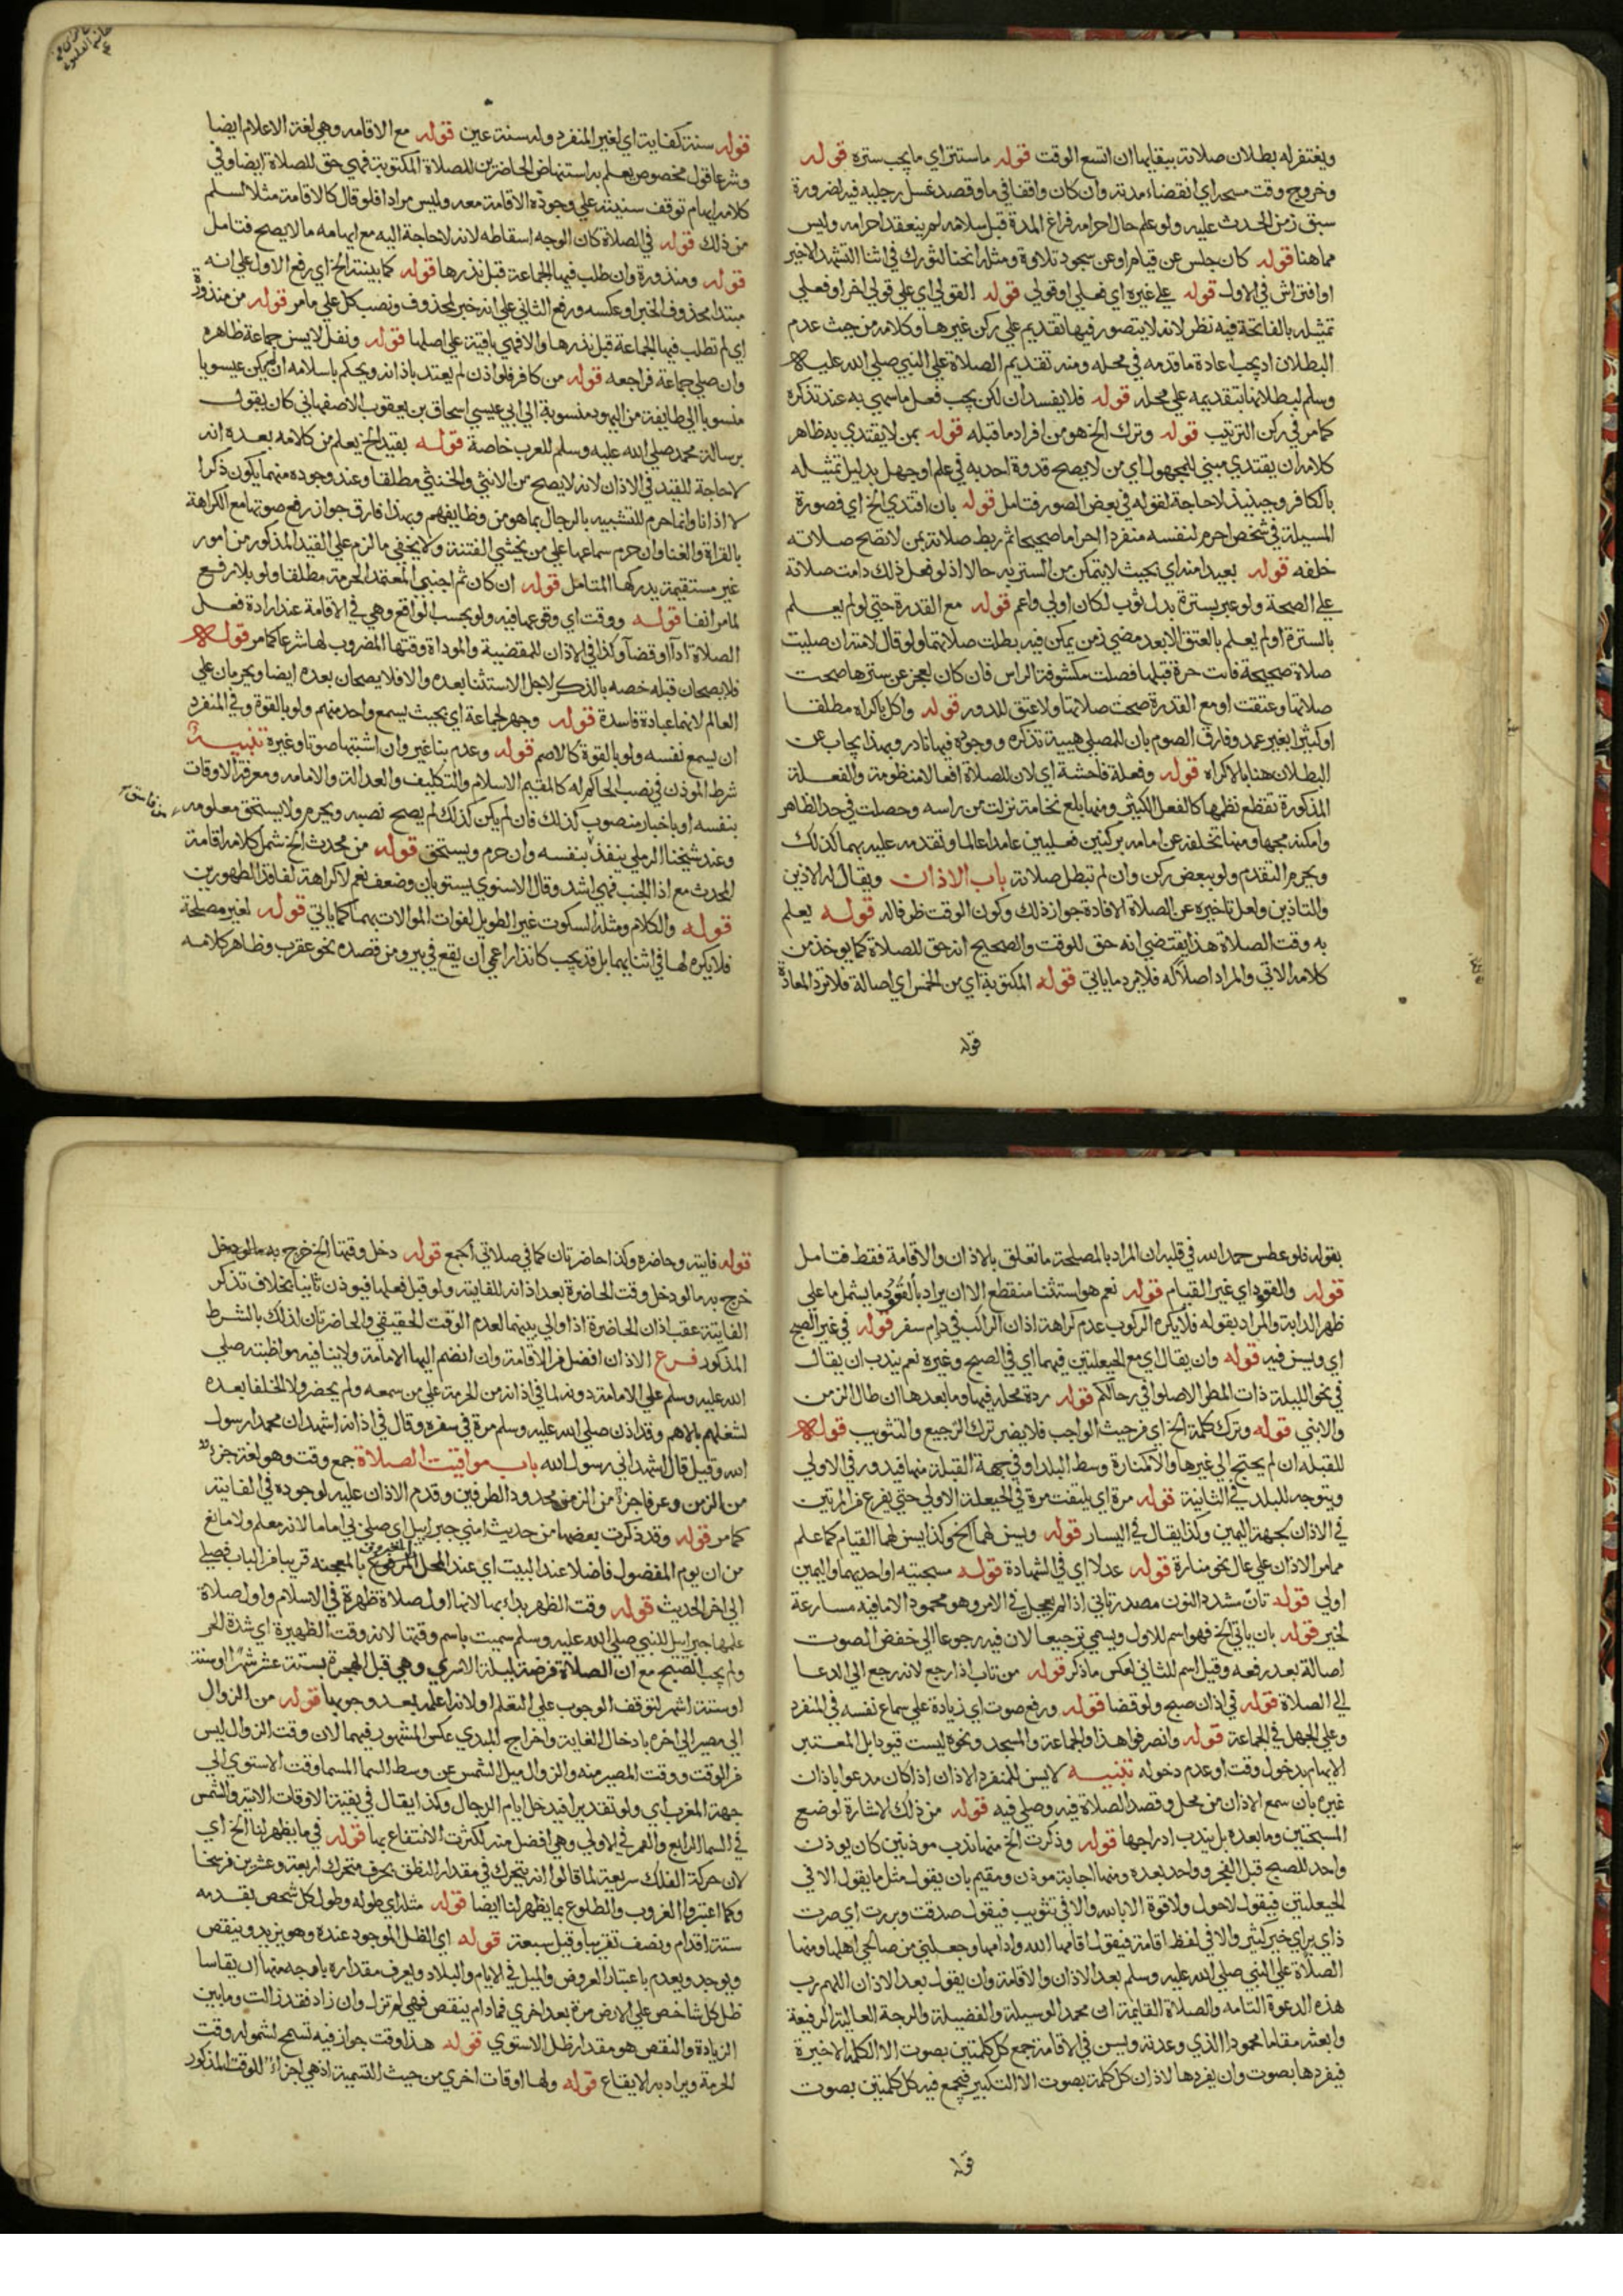 ويغتفر له بطلان صلاته ببقايها ان اتسع الوقت قوله ماستتر اي ما يجب ستره قوله
وخروج وقت مسحه اي انقضاء مدته وان كان واقفا في ماء وقصد غسل رجليه فيه لضرورة
سبق زمن الحدث عليه ولو علم حال احرامه فراغ المدة قبل سلامه لم ينعقد احرامه وليس
مما هنا قوله كان جلس عن قيام او عن سجود تلاوة ومثله انحنا لتورك في اثنا التشهد الاخير
او افتراش في الاول قوله على غيره اي فعلي او قولي قوله القولي اي على قولي اخر او فعلي
تمثيله بالفاتحة فيه نظر لانه لا يتصور فيها تقديم على ركن غيرها وكلامه من حيث عدم
البطلان اذ يجب اعادة ما قدمه في محله ومنه تقديم الصلاة على النبي صلي الله عليه
وسلم لبطلانها بتقديمه على محله قوله فلا يفسد ان لكن يجب فعل ما سهي به عند تذكره
كما مر في ركن الترتيب قوله وترك الخ هو من افراد ما قبله قوله بمن لا يقتدي به ظاهر
كلامه ان يقتدي مبني للمجهول اي من لا يصح قدوة احد به في علم او جهل بدليل تمثيله
بالكافر وحينيذ لا حاجة لقوله في بعض الصور فتامل قوله بان اقتدي الخ اي فصورة
المسيلة في شخص احرم لنفسه منفردا احراما صحيحا ثم ربط صلاته بمن لا تصح صلاته
خلفه قوله بعيدا منه اي بحيث لا يتمكن من الستر به حالا اذ لو فعل ذلك دامت صلاته
على الصحة ولو عبر بسترة بدل ثوب لكان اولي واعم قوله مع القدرة حتي لو لم يعلم
بالسترة او لم يعلم بالعتق الا بعد مضي زمن يمكن فيه بطلت صلاتها ولو قال لامته ان صليت
صلاة صحيحة فانت حرة قبلها فصلت مكشوفة الراس فان كان لعجز عن سترها صحت
صلاتها وعتقت او مع القدرة صحت صلاتها ولا عتق للدور قوله واكل باكراه مطلقا
او كثيرا بغير عمد وفارق الصوم بان للمصلي هيية تذكره ووجوده فيها نادر وبهذا يجاب عن
البطلان هنا بالاكراه قوله وفعلة فاحشة اي لان للصلاة افعالا منظومة والفعلة
المذكورة تقطع نظمها كالفعل الكثير ومنها بلع نخامة نزلت من راسه وحصلت في حد الظاهر
وامكنه مجها ومنها تخلفه عن امامه بركنين فعليين عامدا عالما وتقدمه عليه بهما كذلك
ويحرم التقدم ولو ببعض ركن وان لم تبطل صلاته باب الاذان ويقال له الاذين
والتاذين ولعل تاخيره عن الصلاة لافادة جواز ذلك وكون الوقت ظرفا له قوله يعلم
به وقت الصلاة هذا يقتضي انه حق للوقت والصحيح انه حق للصلاة كما يوخذ من
كلامه الاتي والمراد اصالة فلا يرد ما ياتي قوله المكتوبة اي من الخمس اي اصالة فلا ترد المعادة
قوله
قوله سنة كفاية اي لغير المنفرد وله سنة عين قوله مع الاقامه وهي لغة الاعلام ايضا
وشرعا قول مخصوص يعلم به استنهاض الحاضرين للصلاة المكتوبة فهي حق للصلاة ايضا وفي
كلامه ايهام توقف سنيته على وجود الاقامة معه وليس مرادا فلو قال كالاقامة مثلا لسلم
من ذلك قوله في الصلاة كان الوجه اسقاطه لانه لا حاجة اليه مع ايهامه ما لا يصح فتامل
قوله ومنذورة وان طلب فيها الجماعة قبل نذرها قوله كما بينته الخ اي رفع الاول على انه
مبتدا محذوف الخبر او عكسه ورفع الثاني على انه خبر لمحذوف ونصب كل على مامر قوله من منذورة
اي لم تطلب فيها الجماعة قبل نذرها والا فهي باقية على اصلها قوله ونفل لا يسن جماعة ظاهره
وان صلي جماعة فراجعه قوله من كافر فلو اذن لم يعتد باذانه ويحكم باسلامه ان لم يكن عيسويا
منسوبا الي طايفة من اليهود منسوبة الي ابي عيسي اسحاق بن يعقوب الاصفهاني كان يقول
برسالة محمد صلي الله عليه وسلم للعرب خاصة قوله بقيد الخ يعلم من كلامه بعده انه
لا حاجة للقيد في الاذان لانه لا يصح من الانثي والخنثي مطلقا وعند وجوده منهما يكون ذكرا
لا اذانا وانما حرم للتشبيه بالرجال بما هو من وظايفهم وبهذا فارق جواز رفع صوتها مع الكراهة
بالقراة والغنا وان حرم سماعها على من يخشي الفتنة ولا يخفي ما لزم على القيد المذكور من امور
غير مستقيمة يدركها المتامل قوله ان كان ثم اجنبي المعتمد الحرمة مطلقا ولو بلا رفع
لما مر انفا قوله ووقت اي وقوعهما فيه ولو بحسب الواقع وهي في الاقامة عند ارادة فعل
الصلاة اداا وقضا وكذا في الاذان للمقضية والموداة وقتها المضروب لها شرعا كما مر قوله
فلا يصحان قبله خصه بالذكر لاجل الاستثنا بعده والا فلا يصحان بعده ايضا ويحرمان على
العالم لانهما عبادة فاسدة قوله وجهر لجماعة اي بحيث يسمع واحد منهم ولو بالقوة وفي المنفرد
ان يسمع نفسه ولو بالقوة كالاصم قوله وعدم بنا غير وان اشتبها صوتا وغيره تنبيه
شرط الموذن في نصب الحاكم له كالمقيم الاسلام والتكليف والعدالة والامامه ومعرفة الاوقات
بنفسه او باخبار منصوب كذلك فان لم يكن كذلك لم يصح نصبه ويحرم ولا يستحق معلومه
وعند شيخنا الرملي ينفذ بنفسه وان حرم ويستحق قوله من محدث الخ شمل كلامه اقامة
المحدث مع اذا الجنب فهي اشد وقال الاسنوي يستويان وضعف نعم لا كراهة لفاقد الطهورين
قوله والكلام ومثله السكوت غير الطويل لفوات الموالات بهما كما ياتي قوله لغير مصلحة
فلا يكره لها في اثنايهما بل قد يجب كانذار اعمي ان يقع في بير ومن قصده نحو عقرب وظاهر كلامه
بقوله فلو عطس حمد الله في قلبه ان المراد بالمصلحة ما تعلق بالاذان والاقامة فقط فتامل
قوله والقعود اي غير القيام قوله نعم هو استثنا منقطع الا ان يراد بالقعود ما يشمل ما على
ظهر الدابة والمراد بقوله فلا يكره الركوب عدم كراهة اذان الراكب في دايم سفر قوله في غير الصبح
اي ويسن فيه قوله وان يقال اي مع الحيعلتين فيهما اي في الصبح وغيره نعم يندب ان يقال
في نحو الليلة ذات المطر الا صلوا في رحالكم قوله ردة محله فيها وما بعدها ان طال الزمن
والا بني قوله وترك كلمة الخ اي من حيث الواجب فلا يضر ترك الترجيع والتثويب قوله
للقبلة ان لم يحتج الي غيرها والا كمنارة وسط البلد او في جهة القبلة منها فيدور في الاولي
ويتوجه للبلد في الثانية قوله مرة اي يلتفت مرة في الحيعلة الاولي حتي يفرغ من المرتين
في الاذان بجهة اليمين وكذا يقال في اليسار قوله ويسن لهما الخ وكذا يسن لهما القيام كما علم
مما مر الاذان على عال نحو منارة قوله عدلا اي في الشهادة قوله سبحتيه او احديهما واليمين
اولي قوله تان مشدد النون مصدر تاني اذا لم يعجل في الامر وهو محمود الا ما فيه مسارعة
لخير قوله بان ياتي الخ فهو اسم للاول ويسمي ترجيعا لان فيه رجوعا الي خفض الصوت
اصالة بعد رفعه وقيل اسم للثاني لعكس ما ذكر قوله من تاب اذا رجع لانه رجع الي الدعا
الي الصلاة قوله في اذان صبح ولو قضا قوله ورفع صوت اي زيادة على سماع نفسه في المنفرد
وعلي الجهل في الجماعة قوله وانصرفوا هذا والجماعة والمسجد ونحوه ليست قيودا بل المعتبر
الايهام بدخول وقت او عدم دخوله تنبيه لا يسن للمنفرد الاذان اذا كان مدعوا باذان
غيره بان سمع الاذان من محل وقصد الصلاة فيه وصلي فيه قوله من ذلك الاشارة لوضع
المسبحتين وما بعده بل يندب ادراجها قوله وذكرت الخ منها ندب موذنين كان يوذن
واحد للصبح قبل الفجر وواحد بعده ومنها اجابة موذن ومقيم بان يقول مثل ما يقول الا في
الحيعلتين فيقول لا حول ولا قوة الا بالله والا في تثويب فيقول صدقت وبررت اي صرت
ذا بر اي خير كثير والا في لفظ اقامة فيقول اقامها الله وادامها وجعلني من صالحي اهلها ومنها
الصلاة على النبي صلي الله عليه وسلم بعد الاذان والاقامة وان يقول بعد الاذان اللهم رب
هذه الدعوة التامه والصلاة القايمة ات محمدا الوسيلة والفضيلة والدرجة العالية الرفيعة
وابعثه مقاما محمودا الذي وعدته ويسن في الاقامة جمع كل كلمتين بصوت الا الكلمة الاخيرة
فيفردها بصوت وان يفردها لاذان كل كلمة بصوت الا التكبير فيجمع فيه كل كلمتين بصوت
قوله
قوله فايتة وحاضرة وكذا حاضرتان كما في صلاتي الجمع قوله دخل وقتها الخ خرج به ما لو دخل
خرج به ما لو دخل وقت الحاضرة بعد اذانه للفايتة ولو قبل فعلها فيوذن ثانيا بخلاف تذكر
الفايتة عقب اذان الحاضرة اذا والي بينهما لعدم الوقت الحقيقي والحاضرتان كذلك بالشرط
المذكور فرع الاذان افضل من الاقامة وان انضم اليها الامامة ولا ينافيه مواظبته صلي
الله عليه وسلم على الامامة دونه لما في اذانه من الحرمة على من سمعه ولم يحضر ولا الخلفا بعده
لشغلهم بالاهم وقد اذن صلي الله عليه وسلم مرة في سفره وقال في اذانه اشهد ان محمدا رسول
الله وقيل قال اشهد اني رسول الله باب مواقيت الصلاة جمع وقت وهو لغة جزء
من الزمن وعرفا جزء من الزمن محدود الطرفين وقدم الاذان عليه لوجوده في الفايتة
كما مر قوله وقد ذكرت بعضها من حديث امني جبرايل اي صلي بي اماما لانه معلم ولا مانع
من ان يوم المفضول فاضلا عند البيت اي عند المحل المرفوع بالمعجنة قريبا من الباب فصلي
الي اخر الحديث قوله وقت الظهر بدا بها لانها اول صلاة ظهرت في الاسلام واول صلاة
علمها جبرايل للنبي صلي الله عليه وسلم سميت باسم وقتها لانه وقت الظهيرة اي شدة الحر
ولم يجب الصبح مع ان الصلاة فرضت ليلة الاسري وهي قبل الهجرة بستة عشر شهرا او سنة
او ستة اشهر لتوقف الوجوب على التعلم او لانه اعلم بعد وجوبها قوله من الزوال
الي مصير الي اخره بادخال الغاية واخراج المبدي عكس المشهور فيهما لان وقت الزوال ليس
من الوقت ووقت المصير منه والزوال ميل الشمس عن وسط السما المسما وقت الاستوي الي
جهة المغرب اي ولو تقديرا فيدخل ايام الدجال وكذا يقال في بقية الاوقات الاتية والشمس
في السما الرابع والقمر في الاولي وهي افضل منه لكثرت الانتفاع بها قوله في ما يظهر لنا الخ اي
لان حركة الفلك سريعة لما قالوا انه يتحرك في مقدار النطق بحرف متحرك اربعة وعشرين فرسخا
وكما اعتبروا الغروب والطلوع بما يظهر لنا ايضا قوله مثله اي طوله وطول كل شخص بقدمه
ستة اقدام ونصف تقريبا وقيل سبعة قوله اي الظل الموجود عنده وهو يزيد وينقص
ويوجد ويعدم باعتبار العروض والميل في الايام والبلاد ويعرف مقداره باوجه منها ان يقاسا
ظل كل شاخص على الارض مرة بعد اخري فمادام ينقص فهي لم تزل وان زاد فقد زالت وما بين
الزيادة والنقص هو مقدار ظل الاستوي قوله هذا وقت جواز فيه تسمح لشموله وقت
الحرمة ويراد به لا يقاع قوله ولها اوقات اخري من حيث التسمية اذ هي اجزاء للوقت المذكور